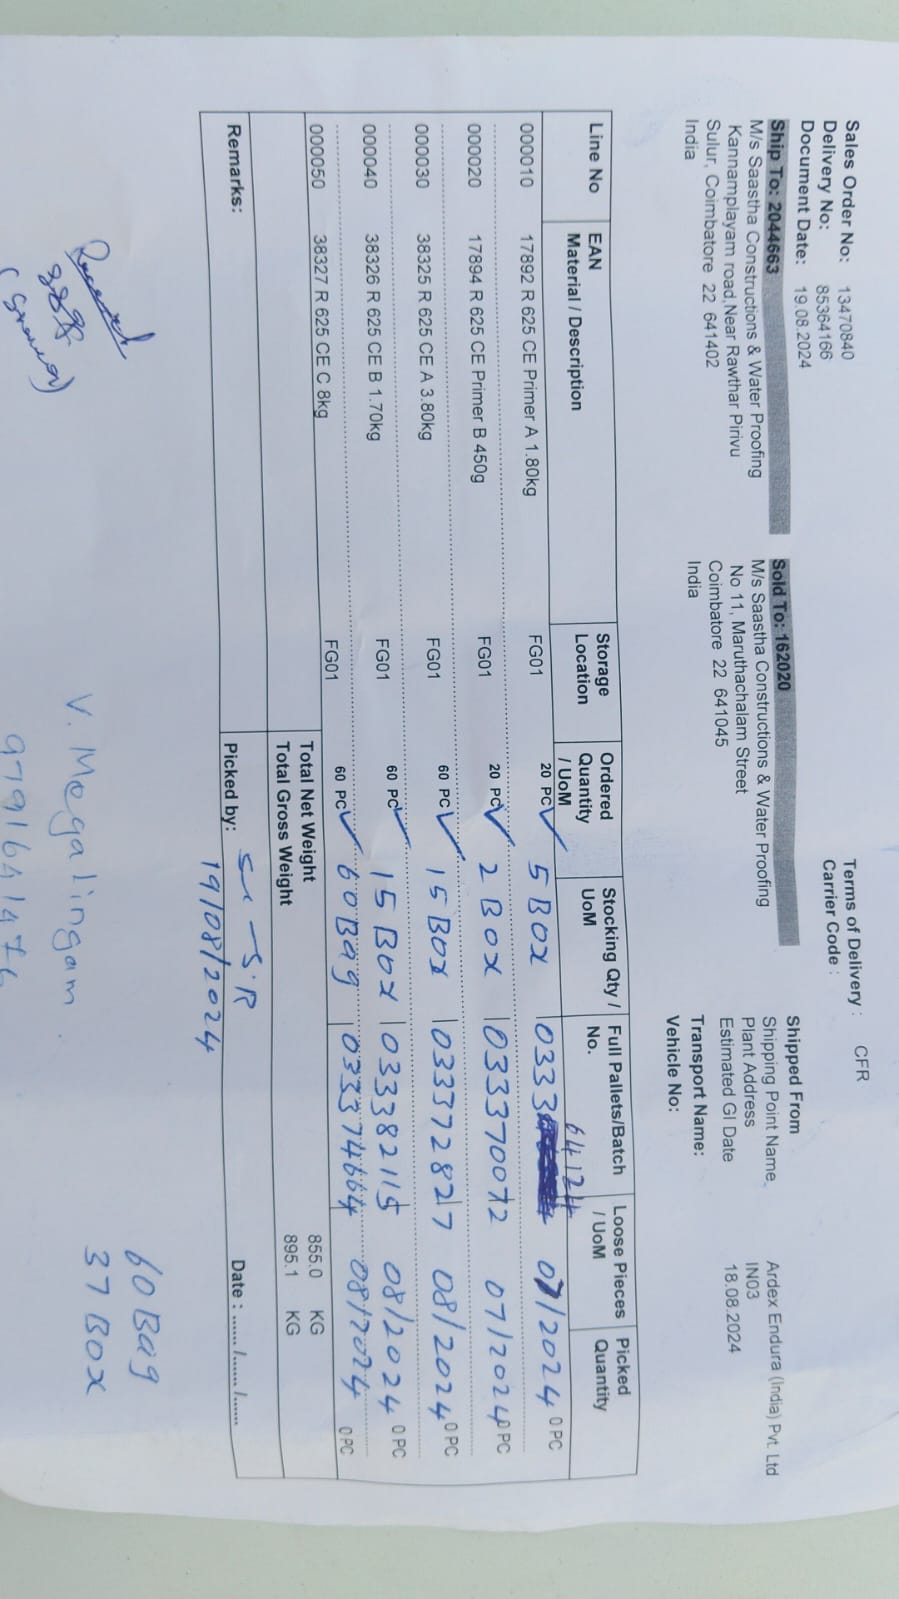 Sales Order No: 13470840
Delivery No: 85364166
Document Date: 19.08.2024
Terms of Delivery : CFR
Carrier Code :
Ship To: 2044663
M/s Saastha Constructions & Water Proofing
Kannamplayam road,Near Rawthar Pirivu
Sulur, Coimbatore 22 641402
India
Sold To: 162020
M/s Saastha Constructions & Water Proofing
No 11, Maruthachalam Street
Coimbatore 22 641045
India
Shipped From
Shipping Point Name Ardex Endura (India) Pvt. Ltd
Plant Address IN03
Estimated GI Date 18.08.2024
Transport Name:
Vehicle No:
Line No EAN Material / Description Storage Location Ordered Quantity / UoM Stocking Qty / UoM Full Pallets/Batch No. Loose Pieces / UoM Picked Quantity
64124
000010 17892 R 625 CE Primer A 1.80kg FG01 20 PC ✓ 5 Box 0333 07/2024 0 PC
000020 17894 R 625 CE Primer B 450g FG01 20 PC ✓ 2 Box 033370072 07/2024 0 PC
000030 38325 R 625 CE A 3.80kg FG01 60 PC ✓ 15 Box 033372827 08/2024 0 PC
000040 38326 R 625 CE B 1.70kg FG01 60 PC ✓ 15 Box 033382115 08/2024 0 PC
000050 38327 R 625 CE C 8kg FG01 60 PC ✓ 60 Bag 033374664 08/2024 0 PC
Total Net Weight 855.0 KG
Total Gross Weight 895.1 KG
Remarks:
Picked by: S.R
19/08/2024
Date : ...... /...... /......
Received
V. Megalingam.
9791641476
60 Bag
37 Box